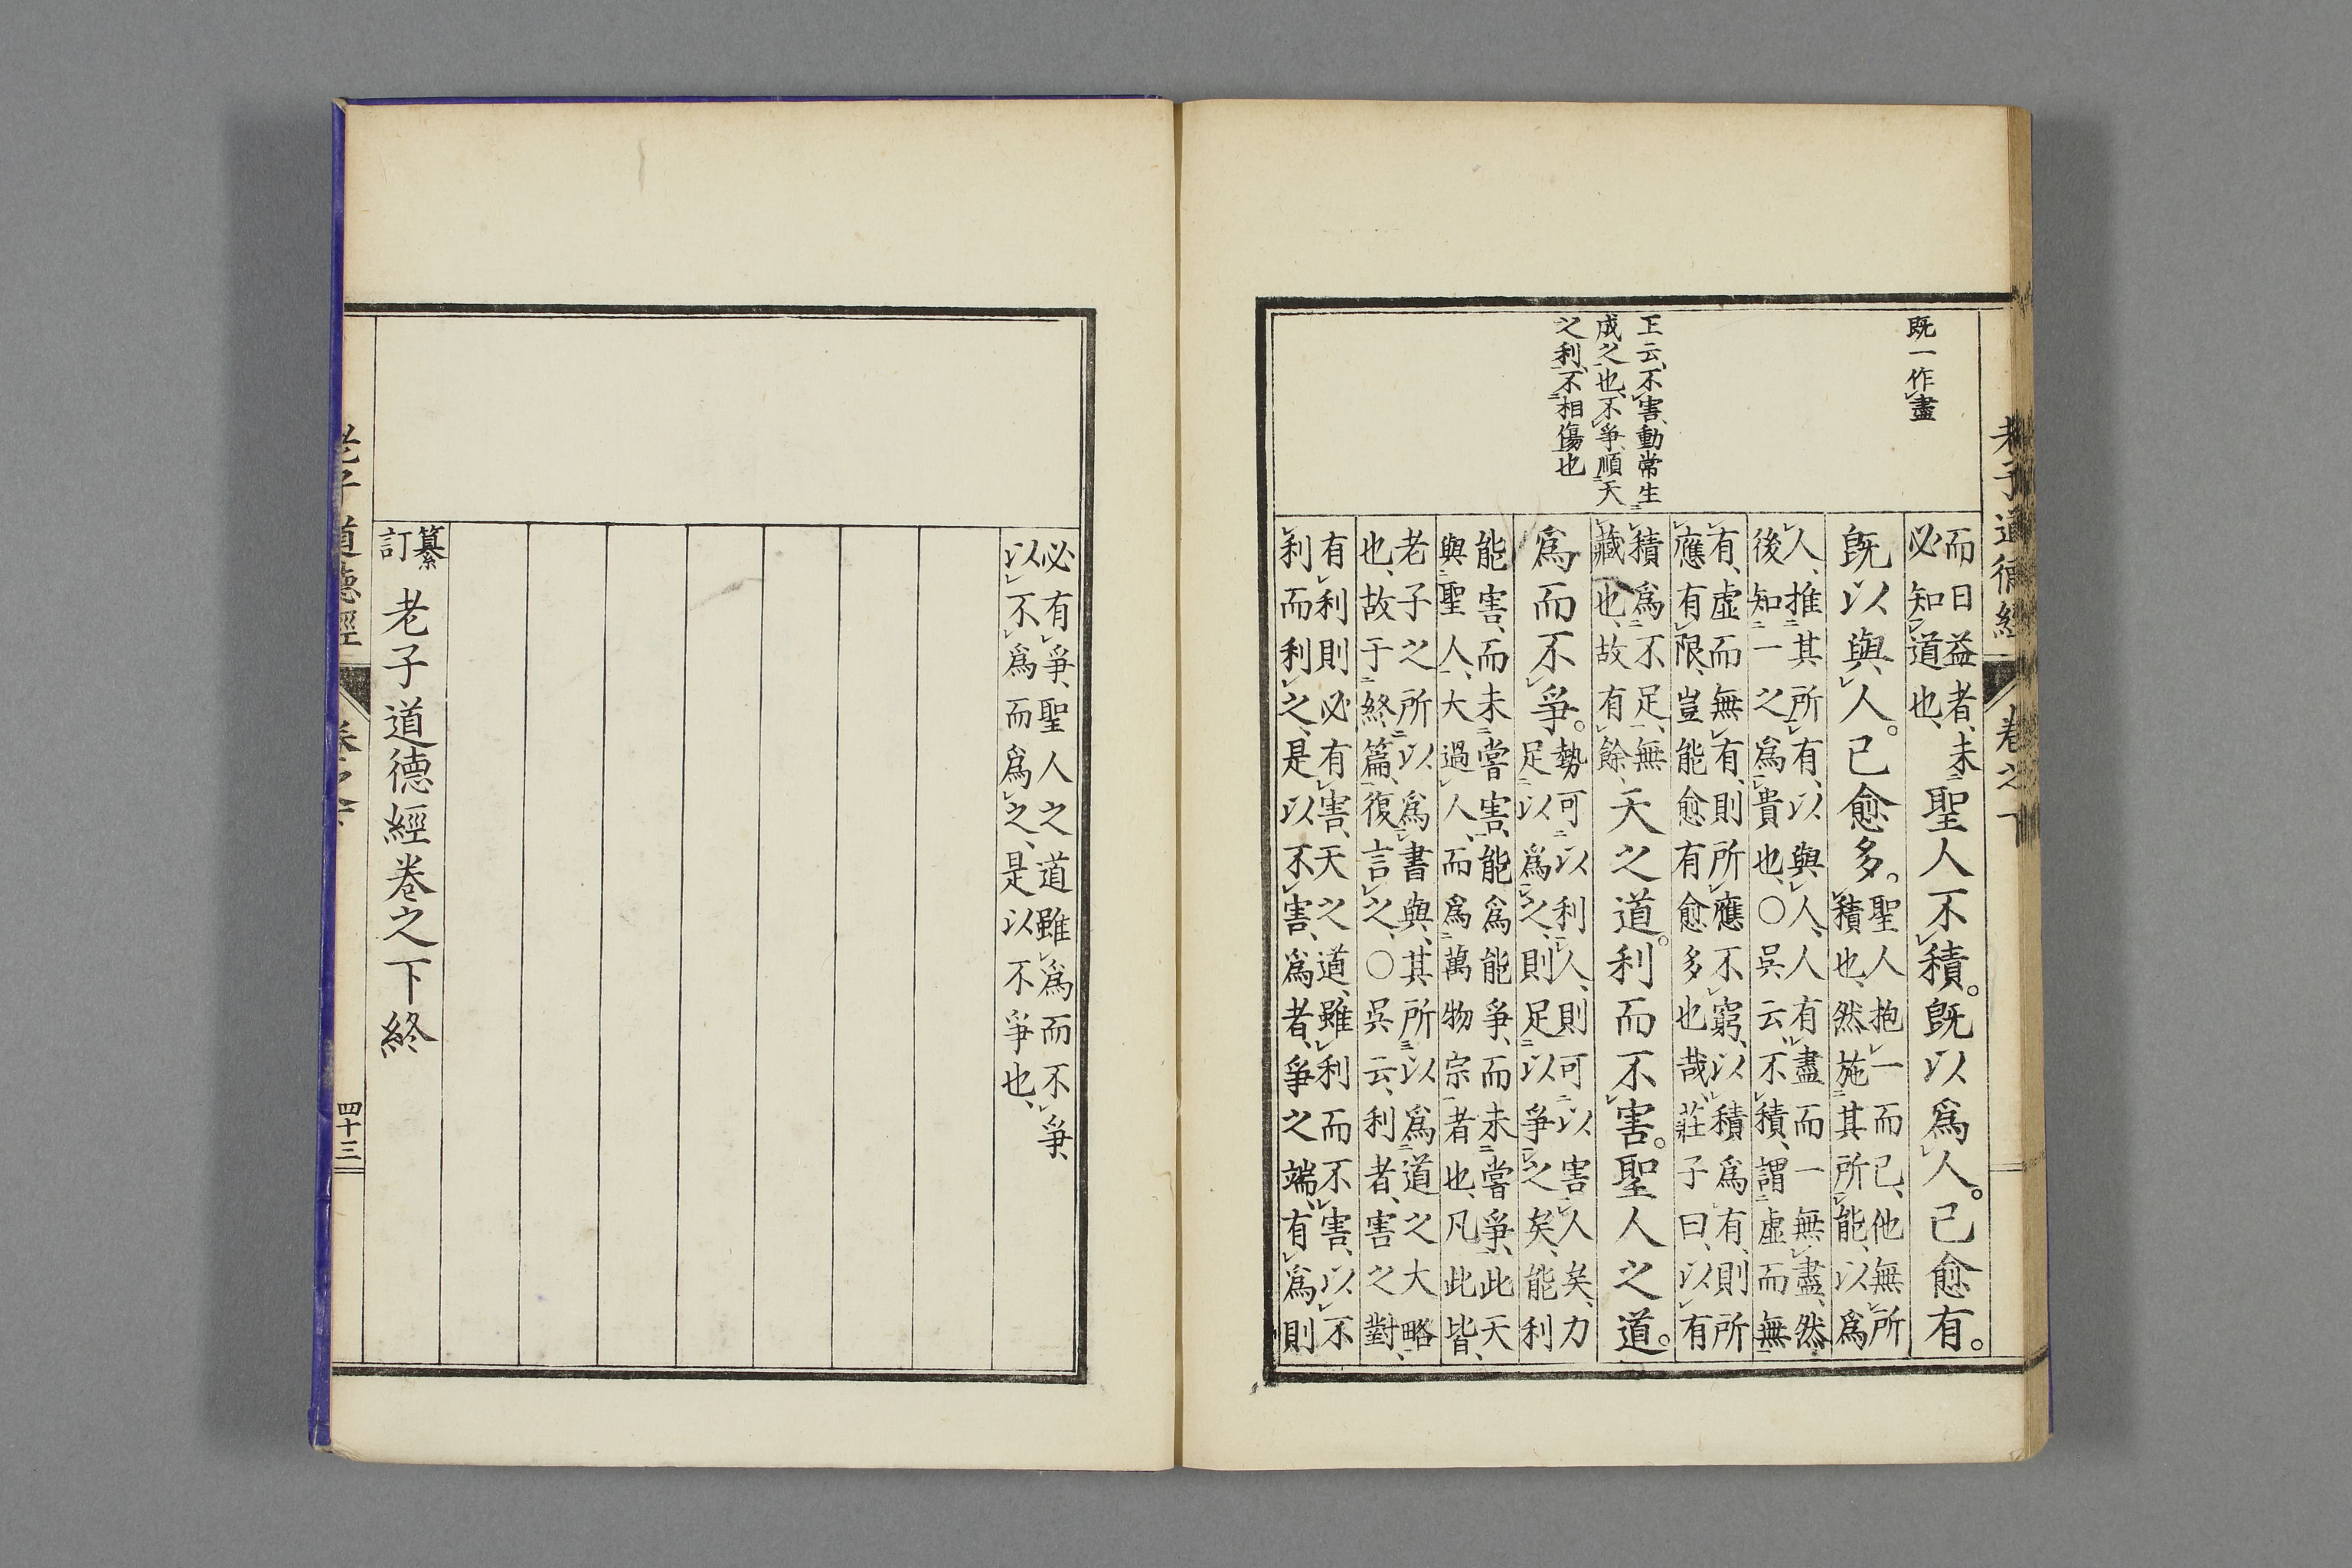 老子道德經
卷之下
既一作盡
王云不害動常生
成之也不爭順天
之利不相傷也
而日益者、未
必知道也、
聖人不積。既以爲人。己愈有。
既以與人。己愈多。
聖人抱一而已、他無所
積也、然施其所能、以爲
人、推其所有、以與人、人有盡而一無盡、然
後知一之爲貴也、○吳云、不積、謂虛而無
有、虛而無有、則所應不窮、以積爲有、則所
應有限、豈能愈有愈多也哉、莊子曰、以有
積爲不足、無
藏也、故有餘、
天之道。利而不害。聖人之道。
爲而不爭。
勢可以利人、則可以害人矣、力
足以爲之、則足以爭之矣、能利
能害、而未嘗害、能爲能爭、而未嘗爭、此天
與聖人、大過人、而爲萬物宗者也、凡此皆、
老子之所以爲書、與其所以爲道之大略
也、故于終篇、復言之、○吳云、利者、害之對、
有利則必有害、天之道、雖利而不害、以不
利而利之、是以不害、爲者、爭之端、有爲則
必有爭、聖人之道雖爲而不爭
以不爲而爲之、是以不爭也、
纂
訂
老子道德經卷之下終
老子道德經
卷之下
四十三